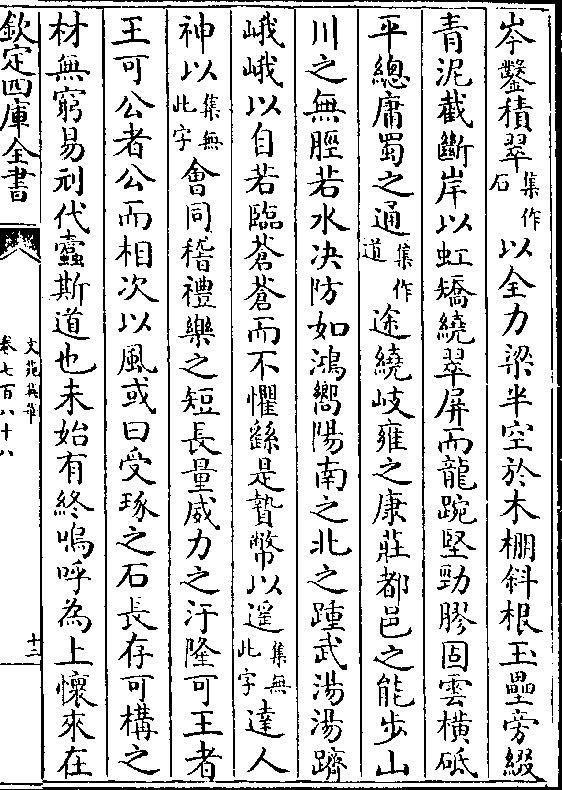 岑鑿積翠集作石以全力梁半空於木棚斜根玉壘旁綴
青泥截斷岸以虹矯繞翠屏而龍踠堅勁膠固雲橫砥
平總庸蜀之通集作道途繞岐雍之康莊都邑之能步山
川之無脛若水决防如鴻嚮陽南之北之踵武湯湯躋
峨峨以自若臨蒼蒼而不懼繇是贄幣以遥集無此字達人
神以集無此字會同稽禮樂之短長量威力之汙隆可王者
王可公者公而相次以風或曰受琢之石長存可構之
材無窮易刓代蠧斯道也未始有終嗚呼為上懷來在
欽定四庫全書
文苑英華
卷七百八十八
十二